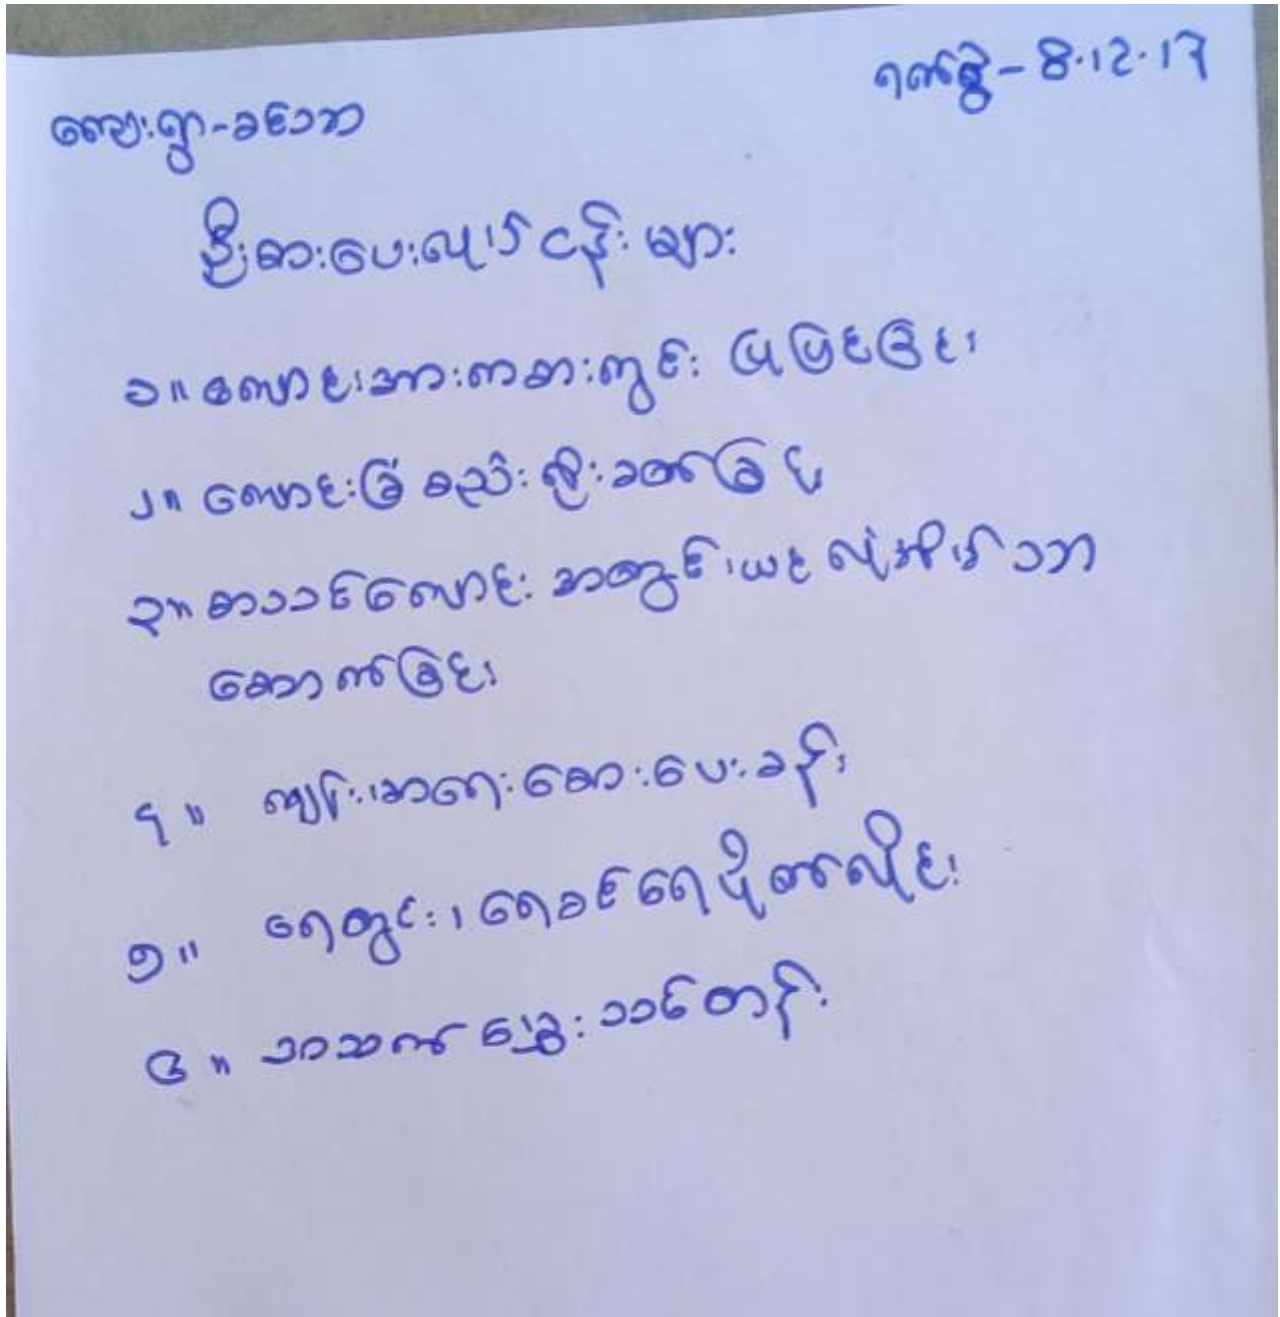 ရက်စွဲ - 8.12.17
ကျေးရွာ - ခင်သာ
ဦးစားပေးလုပ်ငန်းများ
၁။ ကျောင်းအားကစားကွင်း ပြုပြင်ခြင်း
၂။ ကျောင်းခြံစည်းရိုးခတ်ခြင်း
၃။ စာသင်ကျောင်းအတွင်းယင်လုံအိမ်သာ
ဆောက်ခြင်း
၄။ ကျန်းမာရေးဆေးပေးခန်း
၅။ ရေတွင်း၊ ရေခင်ရေပိုက်လိုင်း
၆။ သာသက်မွေးသင်တန်း